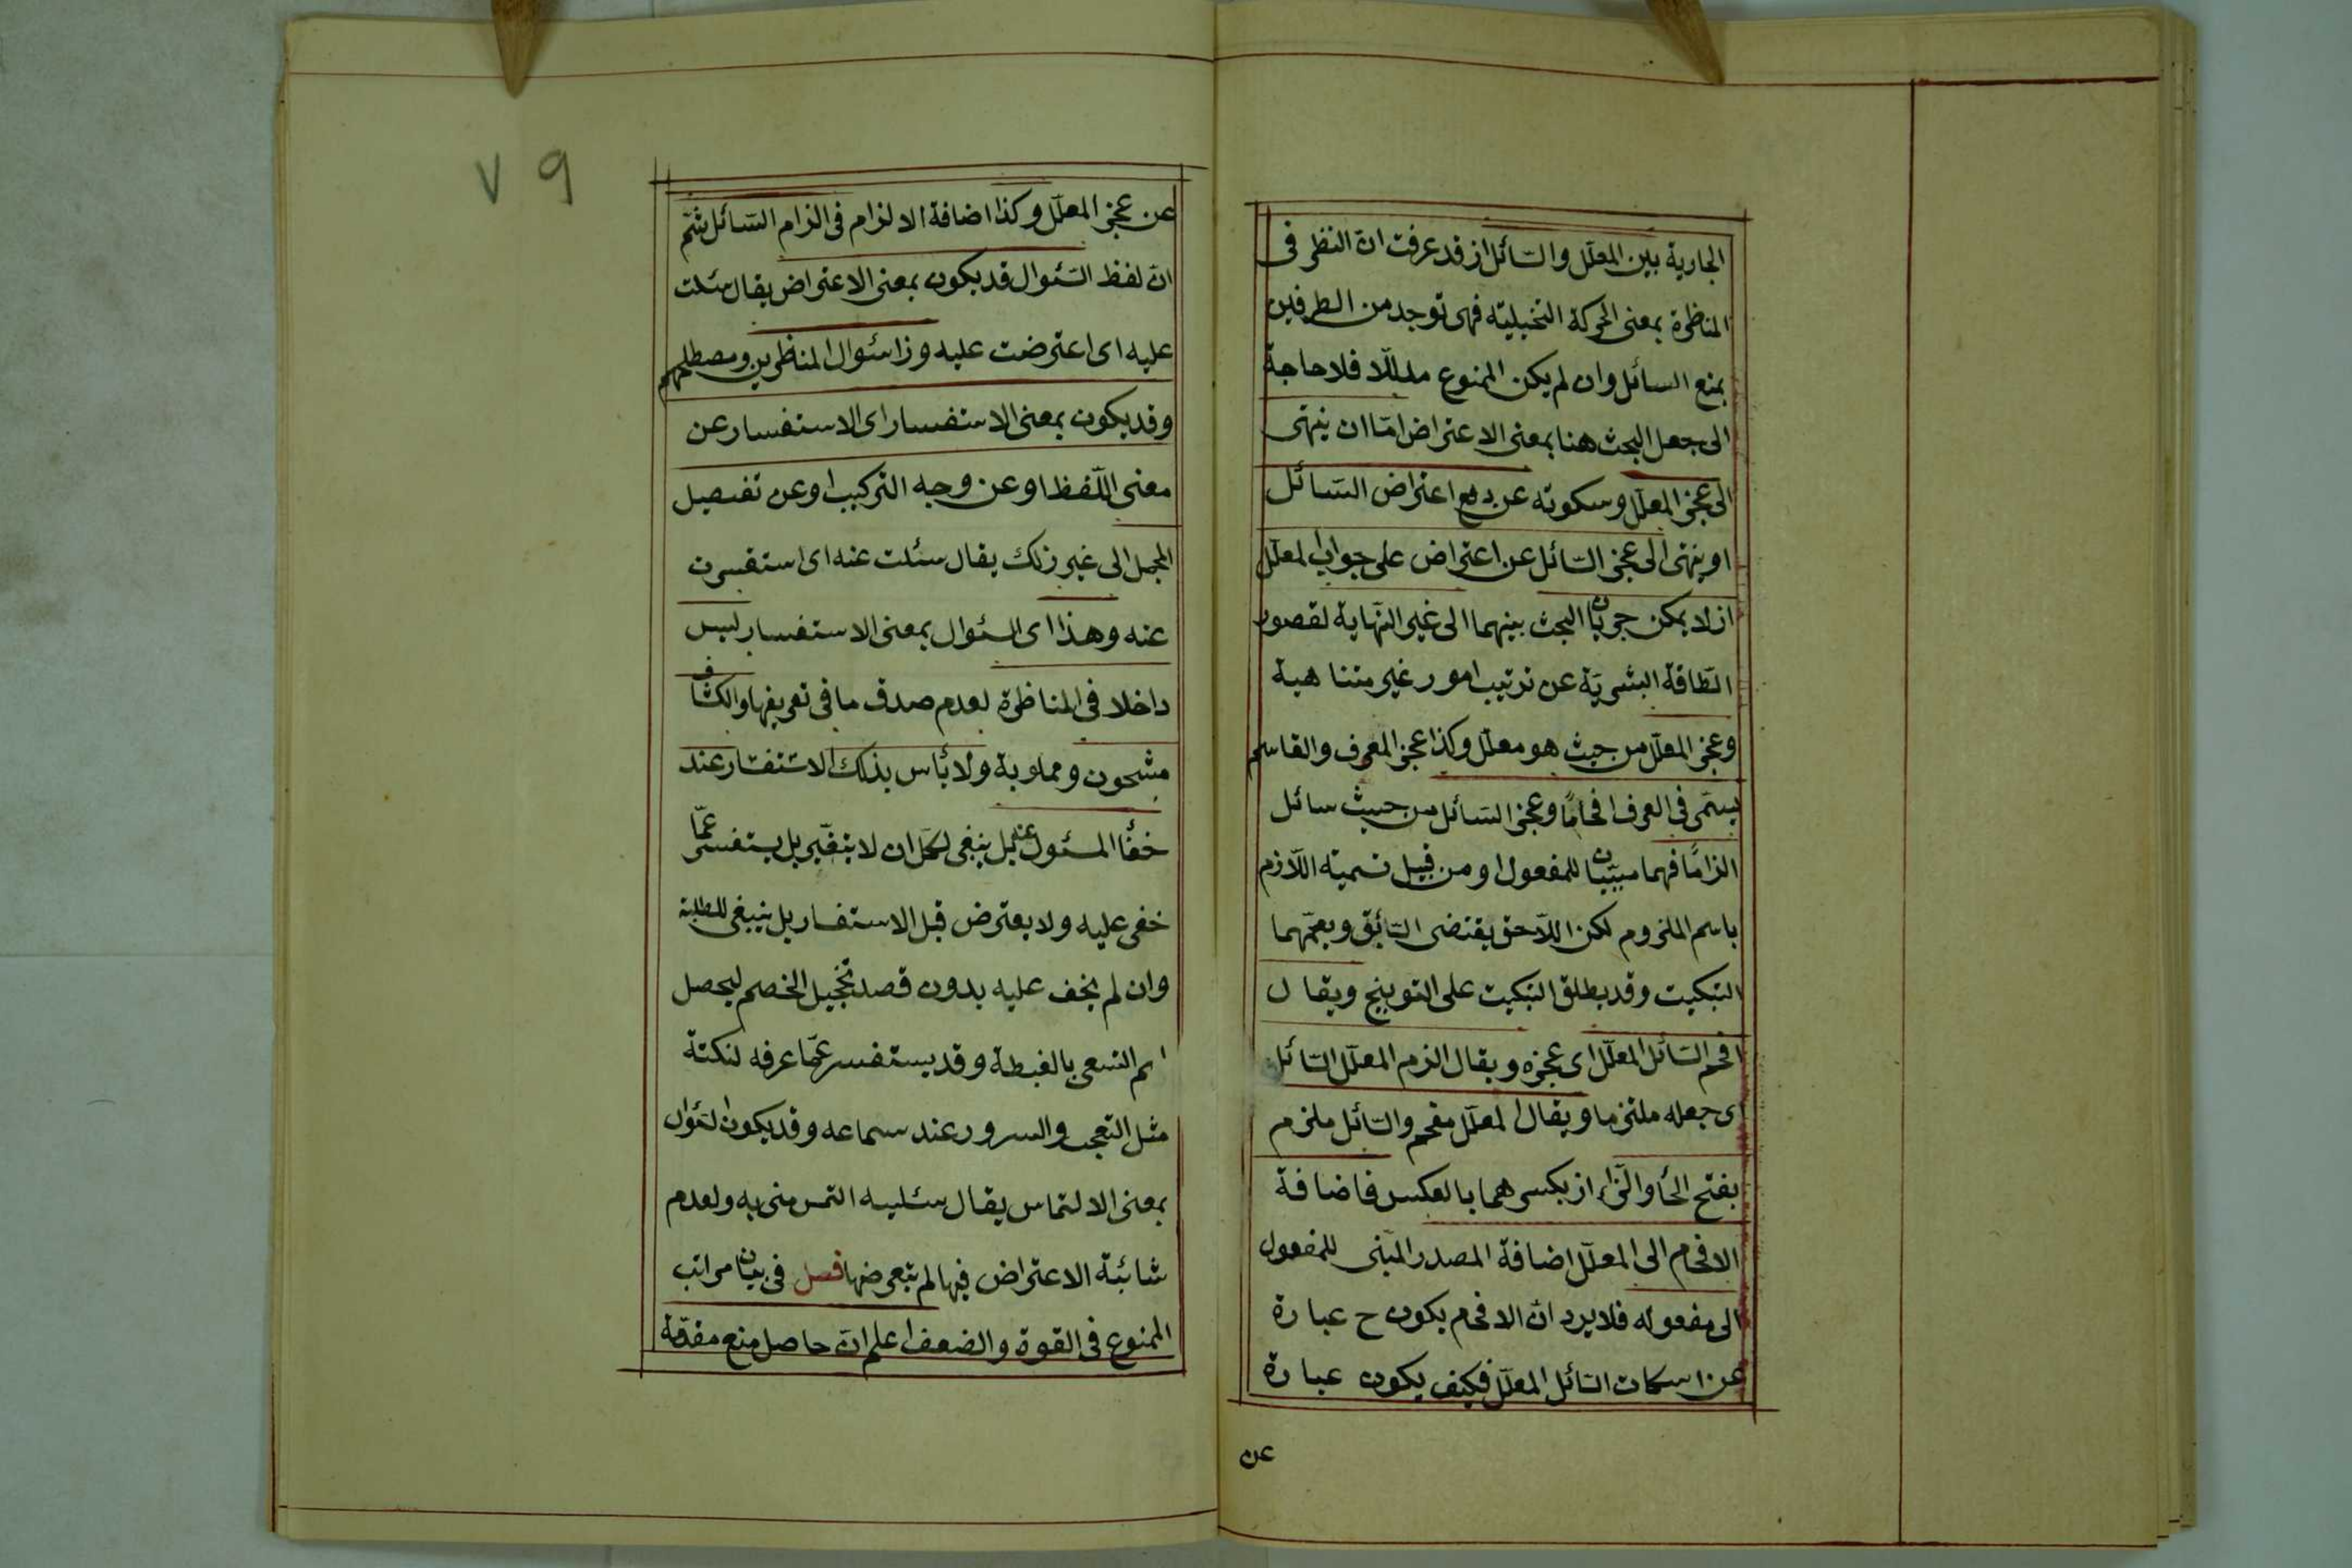 الجارية بين المعلّل والسّائل اذ قد عرفت انّ النظر فى
المناظرة بمعنى الحركة التخييليّة فهى توجد من الطرفين
بمنع السائل وان لم يكن الممنوع مدلّلا فلا حاجة
الى جعل البحث هنا بمعنى الاعتراض امّا ان ينتهى
الى عجز المعلّل وسكوته عن دفع اعتراض السّائل
او ينتهى الى عجز السّائل عن اعتراض على جواب المعلّل
اذ لا يمكن جريان البحث بينهما الى غير النّهاية لقصور
الطّاقة البشريّة عن ترتيب امور غير متناهية
وعجز المعلّل من حيث هو معلّل وكذا عجز المعرف والقاسم
يسمّى فى العرف افحامًا وعجز السّائل من حيث سائل
الزامًا فهما مبنيّان للمفعول او من قبيل تسمية اللّازم
باسم الملزوم لكن اللّاحق يقتضى السّابق ويعمّهما
التبكيت وقد يطلق التبكيت على التوبيخ ويقال
افحم السّائل المعلّل اى عجزه ويقال الزم المعلّل السّائل
اى جعله ملتزما ويقال المعلّل مفحم والسّائل ملزم
بفتح الحأ والزّاء اذ بكسرهما بالعكس فاضافة
الافحام الى المعلّل اضافة المصدر المبنى للمفعول
الى مفعوله فلا يرد انّ الافحام يكون ح عبارة
عن اسكات السّائل المعلّل فكيف يكون عبارة
عن
٧٩
عن عجز المعلّل وكذا اضافة الالزام فى الزام السّائل ثمّ
انّ لفظ السّئوال قد يكون بمعنى الاعتراض يقال سئلت
عليه اى اعترضت عليه وذا سئوال المناظرين ومصطلحهم
وقد يكون بمعنى الاستفسار اى الاستفسار عن
معنى اللّفظ او عن وجه التركيب او عن تفصيل
المجمل الى غير ذلك يقال سئلت عنه اى استفسرت
عنه وهذا اى السئوال بمعنى الاستفسار ليس
داخلا فى المناظرة لعدم صدق ما فى تعريفها والكشّاف
مشحون ومملو به ولا بأس بذلك الاستفسار عند
خفأ المسئول عنه بل ينبغى لكل ان لا يتقيّر بل يستفسر عمّا
خفى عليه ولا يعترض قبل الاستفسار بل ينبغى للطلبة
وان لم يخف عليه بدون قصد تخجيل الخصم ليحصل
لهم التسعى بالغبطة وقد يستفسر عمّا عرفه لنكتة
مثل التعجب والسرور عند سماعه وقد يكون السّئوال
بمعنى الالتماس يقال سئليه التمس منى به ولعدم
شائبة الاعتراض فيها لم يتعرضها فصل فى بيان مراتب
المنوع فى القوة والضعف اعلم انّ حاصل منع مقدّمة